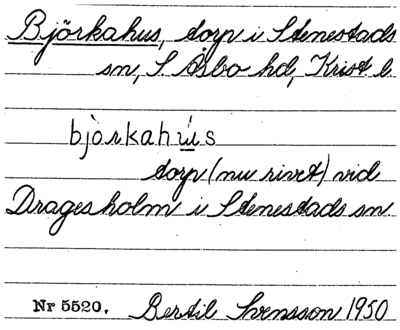 Björkahus, torp i Stenestads
sn, S. Åsbo hd, Krist l.
bjòrkahús
torp (nu rivet) vid
Dragesholm i Stenestads sn.
Nr 5520. Bertil Svensson 1950